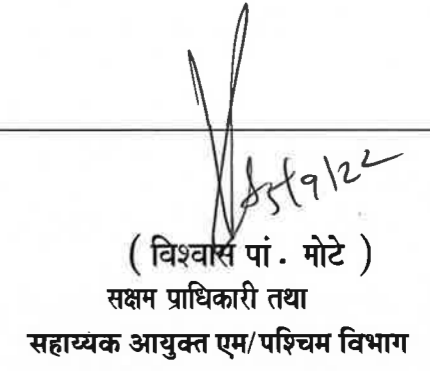 ( विश्वास पां. मोटे )
सक्षम प्राधिकारी तथा
सहाय्यक आयुक्त एम/पश्चिम विभाग